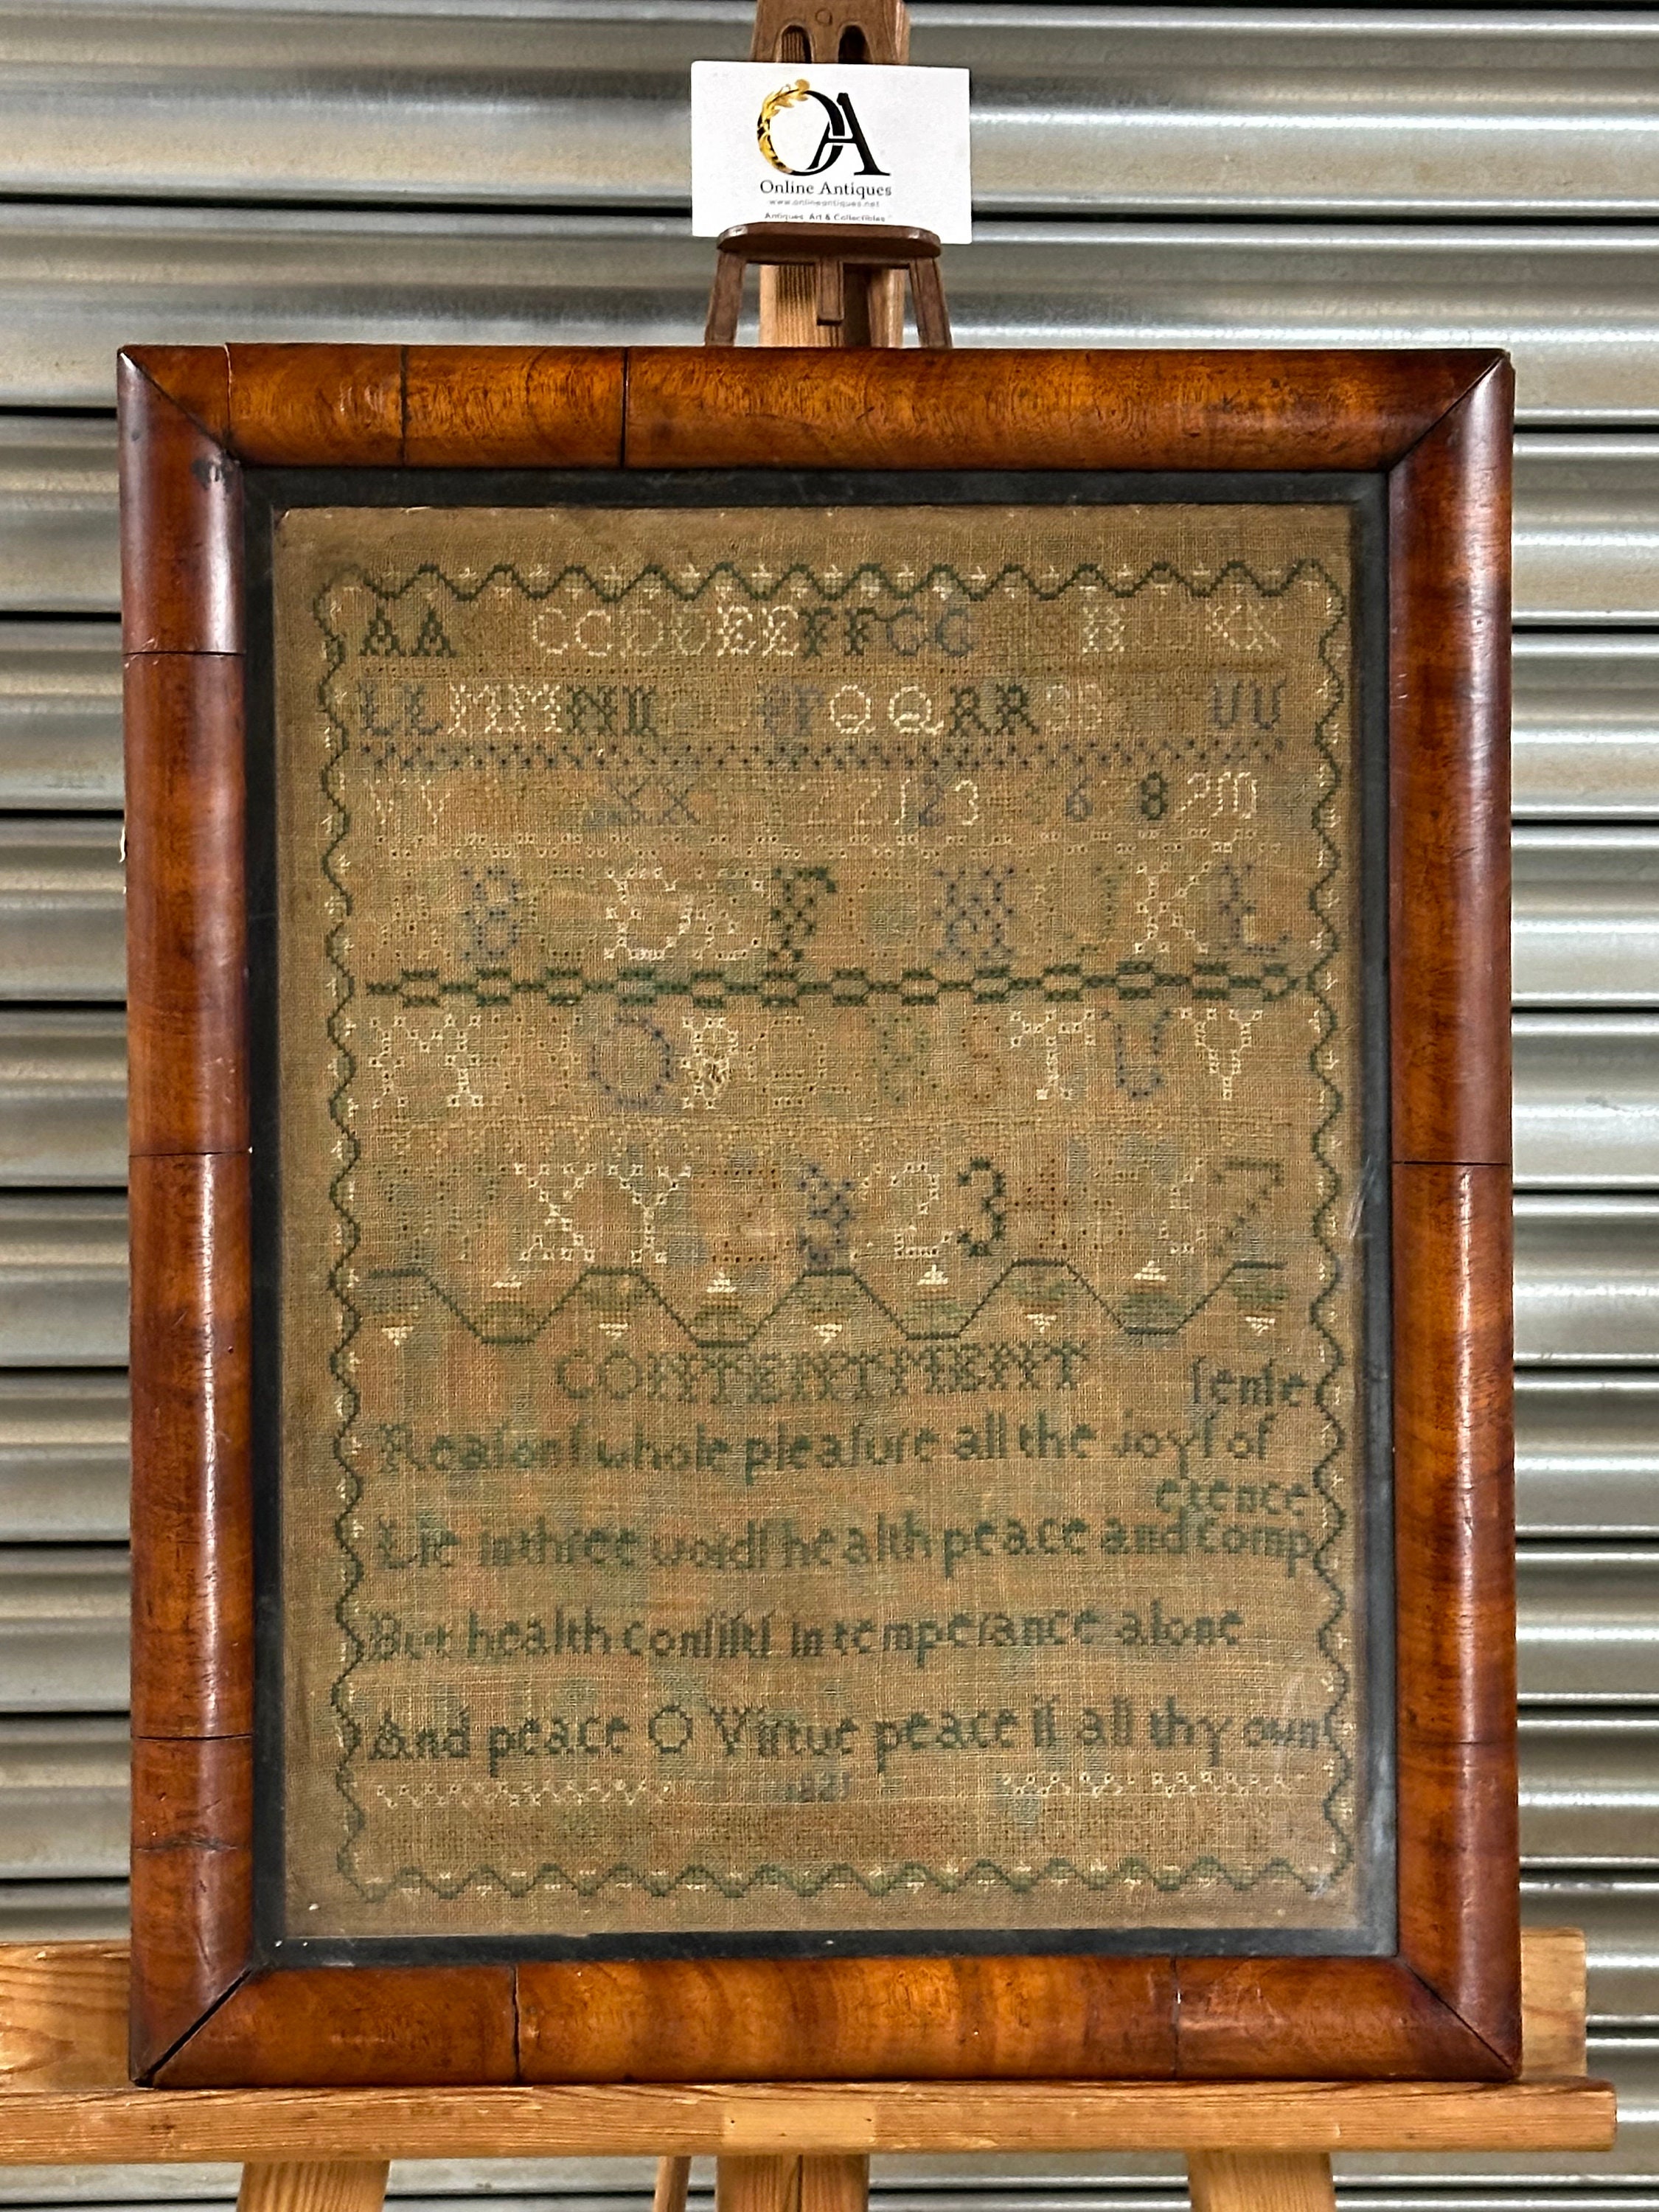 OA
Online Antiques
www.onlineantiques.net
Antiques, Art & Collectibles
AA CCDDEEFFGG H KK
LLMMNN PPQQRRSS UU
VV XX ZZ123 6 8910
B D F H J K L
M O P R S T U V
X Y Z & 2 3 4 7
CONTENTMENT
ſenſe
Reaſonſ whole pleaſure all the joyſ of
etence
Lie in three wordſ health peace and comp
But health conſiſtſ in temperance alone
And peace O Virtue peace iſ all thy own